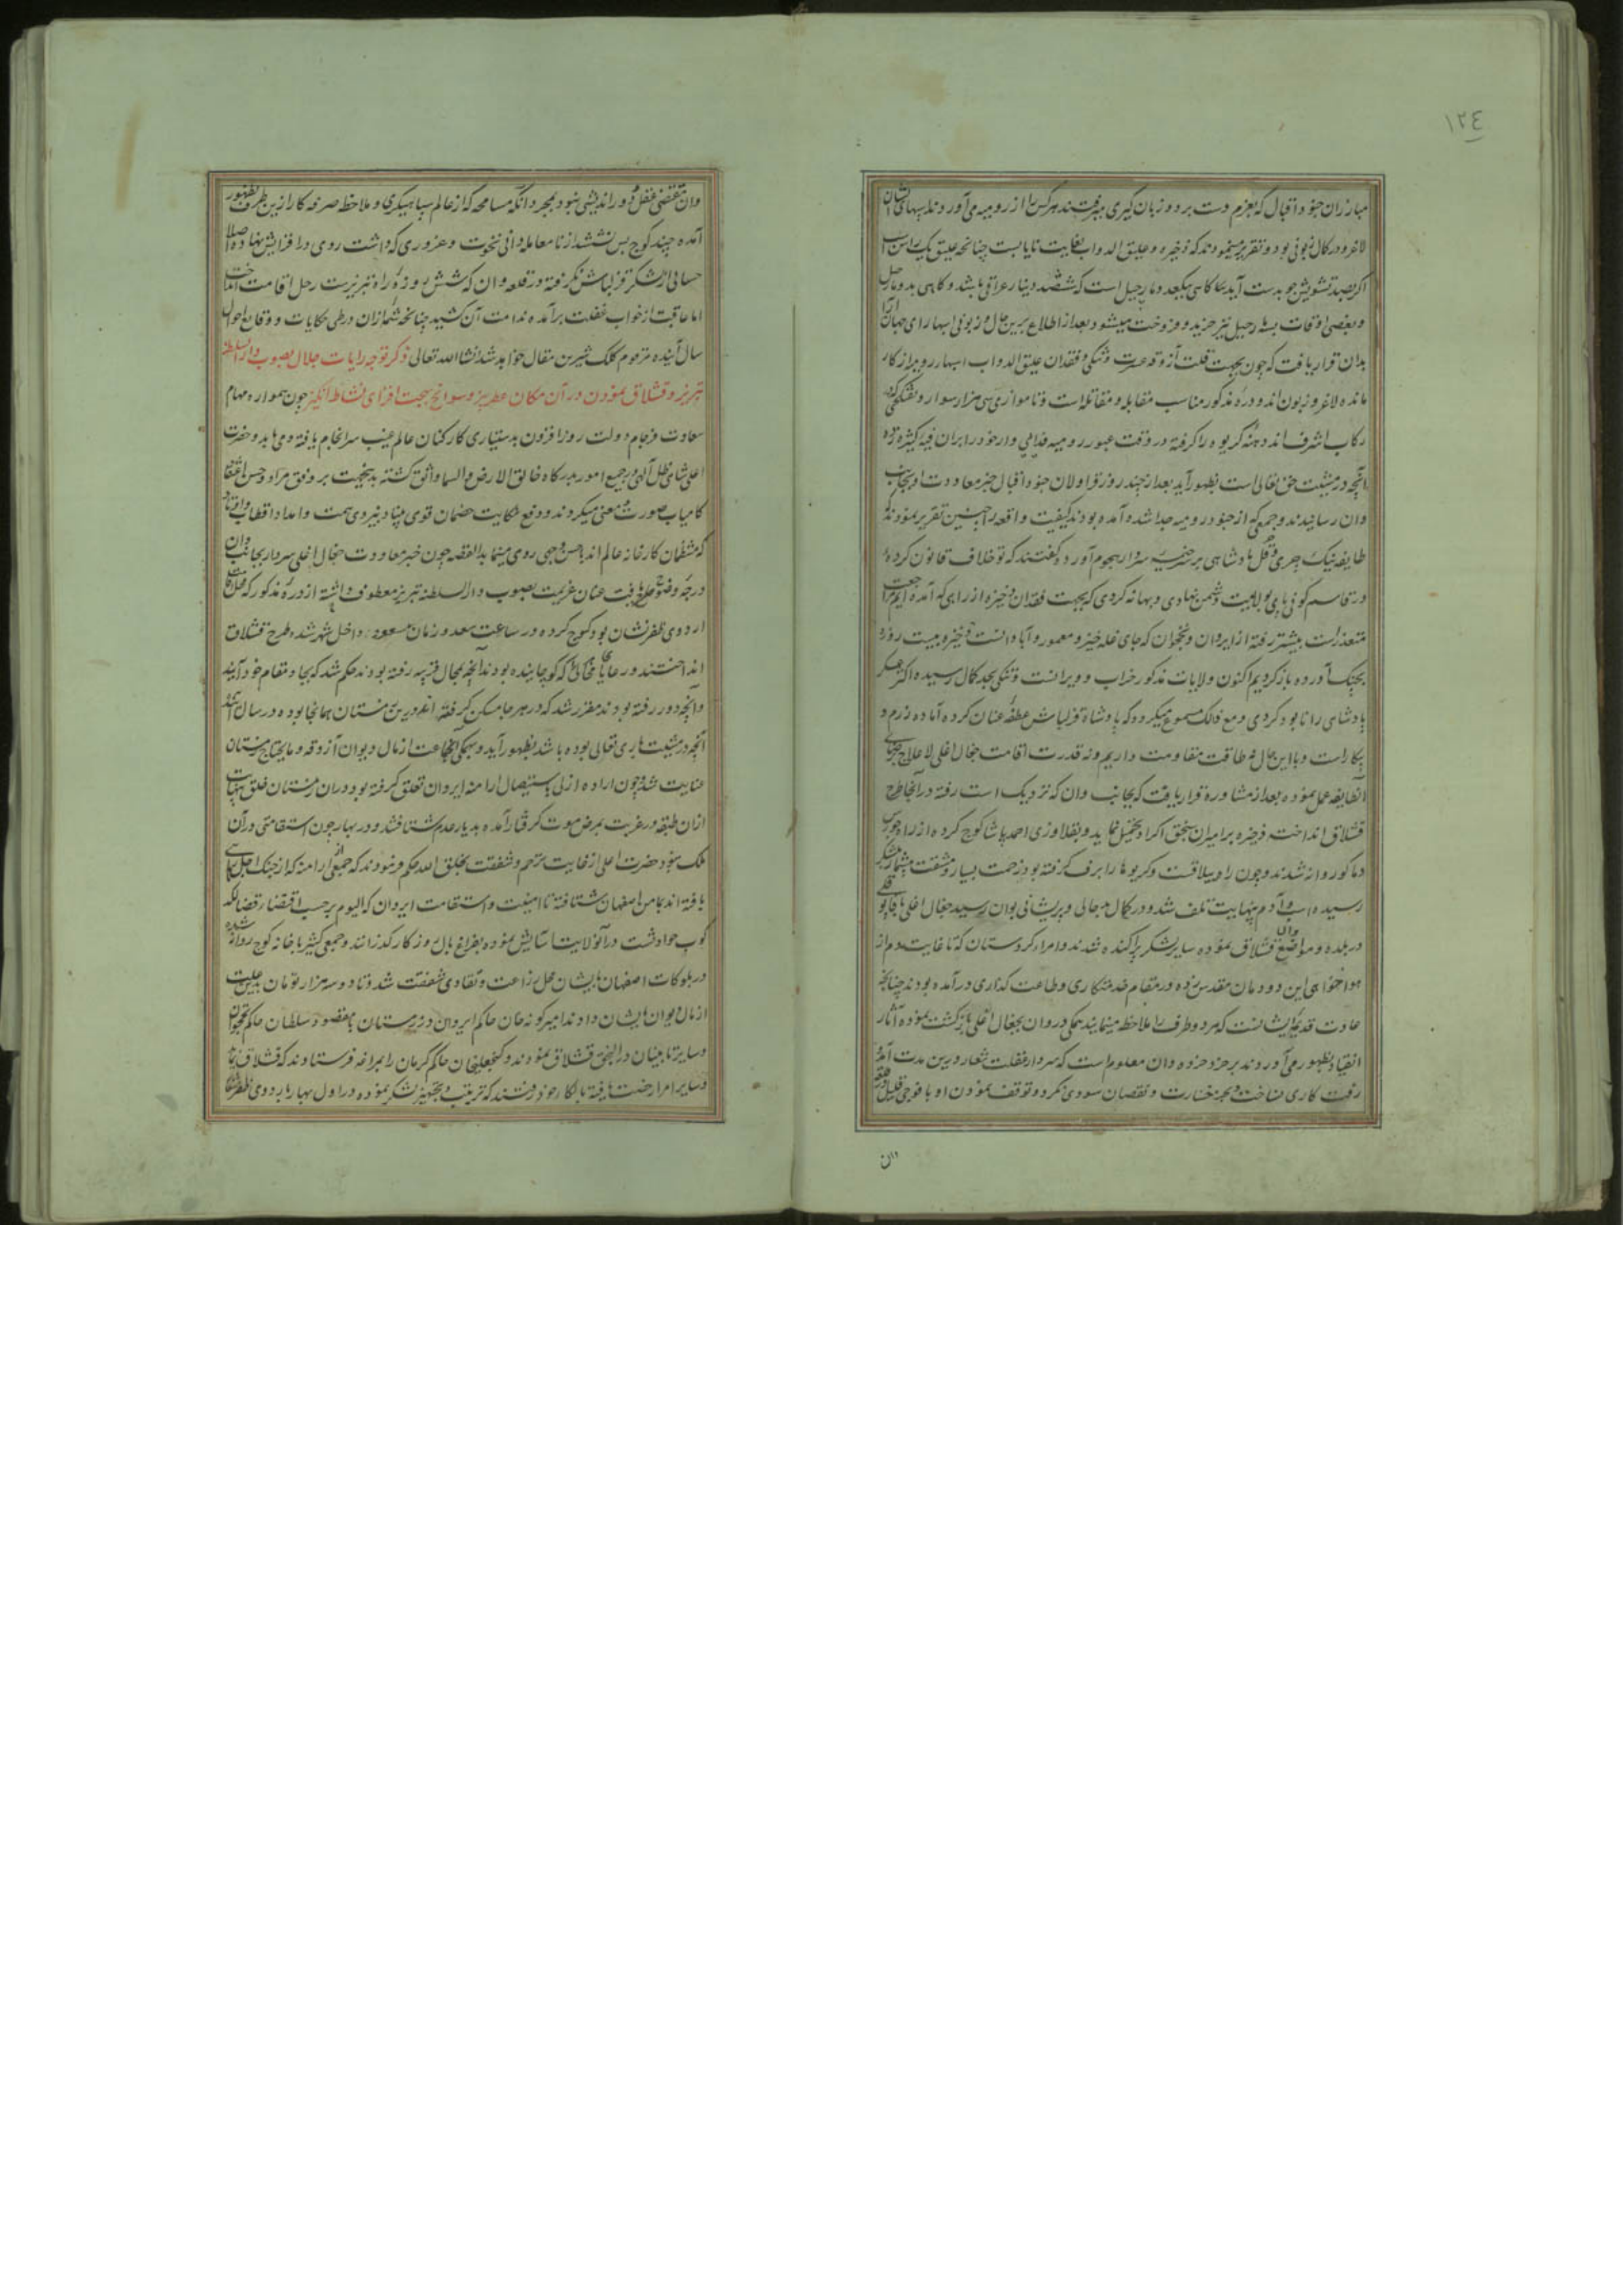 ١٢٤
مبارزان جنود اقبال که بعزم دست برد و زبان گیری میرفتند هر کس را از رومیه می‌آوردند اسبهای ایشان
لاغر و در کمال زبونی بود و تقریر مینمودند که ذخیره و علیق الدواب بغایت نایابست چنانچه علیق یک راس اسب
اگر بصد تشویش جو بدست آید یکا کاهی بیکعدد مارچیل است که ششصد دینار عراقی باشد و کاهی بدو مارچیل
و بعضی اوقات بسه مارچیل نیز خرید و فروخت میشود بعد از اطلاع برین حال و زبونی اسبها رای جهان آرا
بدان قرار یافت که چون بجهت قلت آزوقه و عسرت و تنگی و فقدان علیق الدواب اسبها رومیه از کار
مانده لاغر و زبون اند و دره مذکور مناسب مقابله و مقاتله است و تا موازی سی هزار سوار و تفنگچی در
رکاب اشرف اند دهنه گریوه را گرفته در وقت عبور رومیه فدایی وار خود را بران فیه کثیره زده
آنچه در مشیت حق تعالی است بظهور آید بعد از چند روز قراولان جنود اقبال خبر معاودت او بجانب
وان رسانیدند و جمعی که از جنود رومیه جدا شده آمده بودند کیفیت واقعه را چنین تقریر نمودند که
طایفه ینیکچری و قول پادشاهی بر سر خیمه سردار هجوم آورده گفتند که تو خلاف قانون کرده
در قاسم کونی پای بولایت دشمن نهادی و بهانه کردی که بجهت فقدان ذخیره از راهی که آمده ایم مراجعت
متعذر است بیشتر رفته از ایروان و نخجوان که جای غله خیز و معمور و آبادانست ذخیره بیست روزه
بچنگ آورده باز گردیم اکنون ولایات مذکور خراب و ویرانست و تنگی بحد کمال رسیده اکثر عسکر
پادشاهی را نابود کردی و مع ذلک مسموع میگردد که پادشاه قزلباش عطف عنان کرده آماده رزم و
پیکار است و با این حال نه طاقت مقاومت داریم و نه قدرت اقامت جغال اغلی لاعلاج برضای
آنطایفه عمل نموده بعد از مشاوره قرار یافت که بجانب وان که نزدیک است رفته در آنجا طرح
قشلاق انداخته ذخیره بر امیران سنجق اکراد تحمیل نماید و بقلاوزی احمد پاشا کوچ کرده از راه چورس
و ماکو روانه شدند و چون راه ییلاقست و گریوها را برف گرفته بود زحمت بسیار و مشقت بیشمار بلشکر
رسیده اسب و آدم بینهایت تلف شد و در کمال بدحالی و پریشانی بوان رسید جغال اغلی با قاپوقلی
در بلده و مواضع وان قشلاق نموده سایر لشکر پراکنده شدند و امراء کردستان که تا غایت دم از
هواخواهی این دودمان مقدس زده در مقام خدمتکاری و طاعت گذاری درآمده بودند چنانچه
عادت قدیم ایشانست که هر دو طرف را ملاحظه مینمایند همگی در وان بجغال اغلی بازگشت نموده آثار
انقیاد بظهور می‌آوردند بر خرد خرده دان معلوم است که سردار غفلت شعار درین مدت آمد و
رفت کاری نساخت و بجز خسارت و نقصان سودی نکرد و توقف نمودن او با فوجی قلیل در قلعه
وان
وان مقتضی عقل و دوراندیشی نبود بمجرد آنکه مسامحه که از عالم سپاهیگری و ملاحظه صرفه کار ازین طرف بظهور
آمده چند کوچ پس نشستند از نامعامله دانی نخوت و غروری که داشت روی در افزایش نهاده اصلا
حسابی از لشکر قزلباش نگرفته در قلعه وان که شش روزه راه تبریزست رحل اقامت انداخت
اما عاقبت از خواب غفلت برآمده ندامت آن کشید چنانچه شمه‌ازان در طی حکایات و وقایع احوال
سال آینده مرقوم کلک شیرین مقال خواهد شد انشاالله تعالی ذکر توجه رایات جلال بصوب دارالسلطنه
تبریز و قشلاق نمودن در آن مکان عطربیز و سوانح بهجت افزای نشاط انگیز چون همواره مهام
سعادت فرجام دولت روزافزون بدستیاری کارکنان عالم غیب سرانجام یافته و می‌یابد و حضرت
اعلی شاهی ظل اللهی در جمیع امور بدرگاه خالق الارض والسما واثق گشته بدینجهت بر وفق مراد و حسن اعتقاد
کامیاب صورت و معنی میگردند و دفع نکایت خصمان قوی بنیاد بنیروی همت و امداد اقطاب و اوتاد
که منتظمان کارخانه عالم اند باحسن وجهی روی مینماید القصه چون خبر معاودت جغال اغلی سردار بجانب وان
درجه وضوح یافت عنان عزیمت بصوب دارالسلطنه تبریز معطوف داشته از دره مذکور که محل نزول
اردوی ظفرنشان بود کوچ کرده در ساعت سعد و زمان مسعود داخل شهر شده طرح قشلاق
انداختند و رعایای محالی که کوچانیده بودند آنچه بمحال قریبه رفته بودند حکم شد که بجا و مقام خود آیند
و آنچه دور رفته بودند مقرر شد که در هر جا مسکن گرفته اند درین زمستان همانجا بوده در سال آینده
آنچه در مشیت باری تعالی بوده باشد بظهور آید و بهمگی آنجماعت از مال دیوان آزوقه و مایحتاج زمستان
عنایت شد و چون اراده ازلی باستیصال ارامنه ایروان تعلق گرفته بود دران زمستان خلق بینهایت
ازان طبقه در غربت بمرض موت گرفتار آمده بدیار عدم شتافتند و در بهار چون استقامتی در آن
ملک نبود حضرت اعلی از غایت ترحم و شفقت بخلق الله حکم فرمودند که جمعی از ارامنه که از چنگ اجل خلاصی
یافته اند بمامن اصفهان شتافته تا امنیت و استقامت ایروان که الیوم بر حسب اقتضاء قضا لگد
کوب حوادثست در آنولایت آسایش نموده بفراغ بال روزگار گذرانند و جمعی کثیر با خانه کوچ روانه شده
در بلوکات اصفهان بایشان محل زراعت و تقاوی شفقت شد و تا دو سه هزار تومان بدین علت
از مال دیوان بایشان دادند امیرگونه خان حاکم ایروان در زمستان با مقصود سلطان حاکم نخجوان
و سایر تابینان در النجق قشلاق نمودند و گنجعلیخان حاکم کرمان را بمراغه فرستادند که قشلاق نماید
و سایر امرا رخصت یافته بالکا خود رفتند که ترتیب و تجهیز لشکر نموده در اول بهار باردوی ظفرنشان